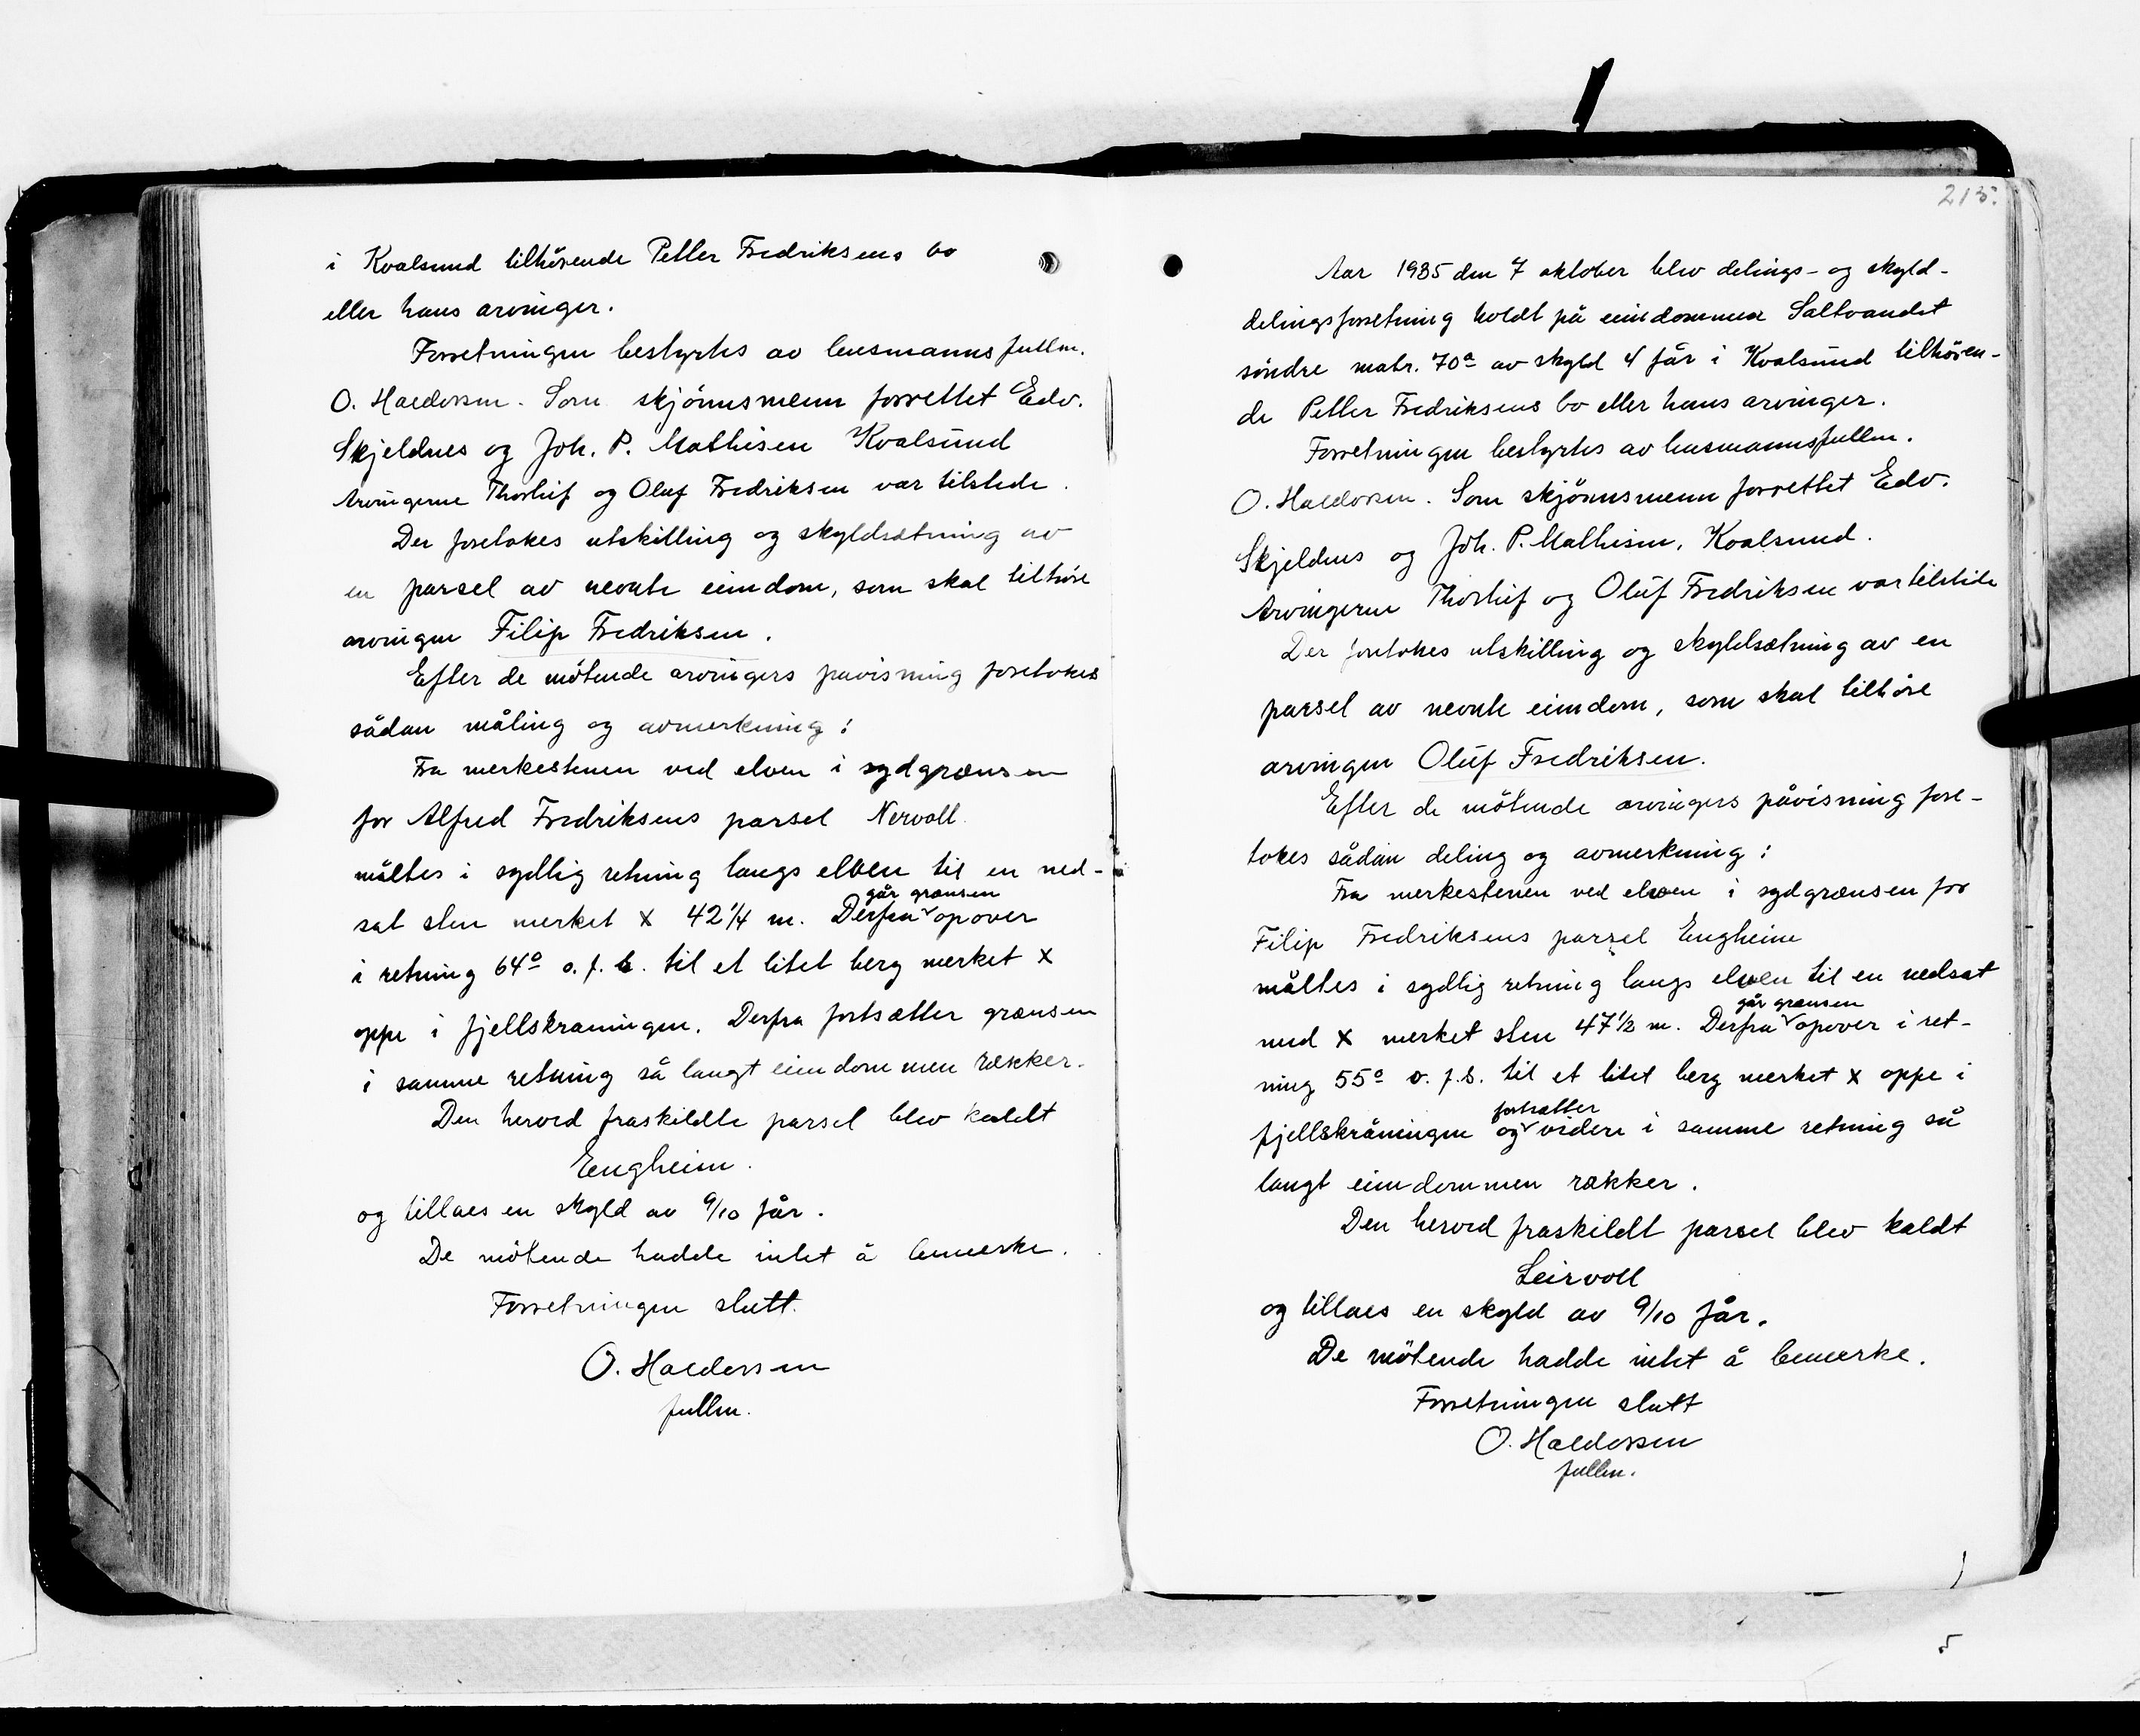 i Kvalsund tilhörende Petter Fredriksens bo
eller hans arvinger.
Forretningen bestyrtes av lensmannsfullm.
O. Haldorsen. Som skjönnsmenn forrettet Edv.
Skjeldnes og Joh. P. Mathisen Kvalsund
Arvingerne Thorleif og Oluf Fredriksen var tilstede.
Der foretokes utskilling og skyldsætning av
en parsel av nevnte eiendom, som skal tilhöre
arvingen Filip Fredriksen.
Efter de mötende arvingers påvisning foretokes
sådan måling og avmerkning:
Fra merkestenen ved elven i sydgrænsen
for Alfred Fredriksens parsel Nervoll
måltes i sydlig retning langs elven til en ned-
går grænsen
sat sten merket X 42 1/4 m. Derfra opover
i retning 64° o. f. s. til et litet berg merket X
oppe i fjellskråningen. Derfra fortsætter grænsen
i samme retning så langt eiendommen rækker.
Den herved fraskildte parsel blev kaldt
Engheim.
og tillaes en skyld av 9/10 får.
De mötende hadde intet å bemerke.
Forretningen slutt.
O. Haldorsen
fullm.
215.
Aar 1935 den 7 oktober blev delings- og skyld-
delingsforretning holdt på eiendommen Saltvandet
söndre matr. 70a av skyld 4 får i Kvalsund tilhören-
de Petter Fredriksens bo eller hans arvinger.
Forretningen bestyrtes av lensmannsfullm.
O. Haldorsen. Som skjönnsmenn forrettet Edv.
Skjeldnes og Joh. P. Mathisen, Kvalsund.
Arvingerne Thorleif og Oluf Fredriksen var tilstede
Der foretokes utskilling og skyldsætning av en
parsel av nevnte eiendom, som skal tilhöre
arvingen Oluf Fredriksen.
Efter de mötende arvingers påvisning fore-
tokes sådan deling og avmerkning:
Fra merkestenen ved elven i sydgrænsen for
Filip Fredriksens parsel Engheim
måltes i sydlig retning langs elven til en nedsat
går grænsen
med X merket sten 47 1/2 m. Derfra opover i ret-
ning 55° o. f. s. til et litet berg merket X oppe i
fortsætter
fjellskråningen og videre i samme retning så
langt eiendommen rækker.
Den herved fraskildt parsel blev kaldt
Leirvoll
og tillaes en skyld av 9/10 får.
De mötende hadde intet å bemerke.
Forretningen slutt
O. Haldorsen
fullm.